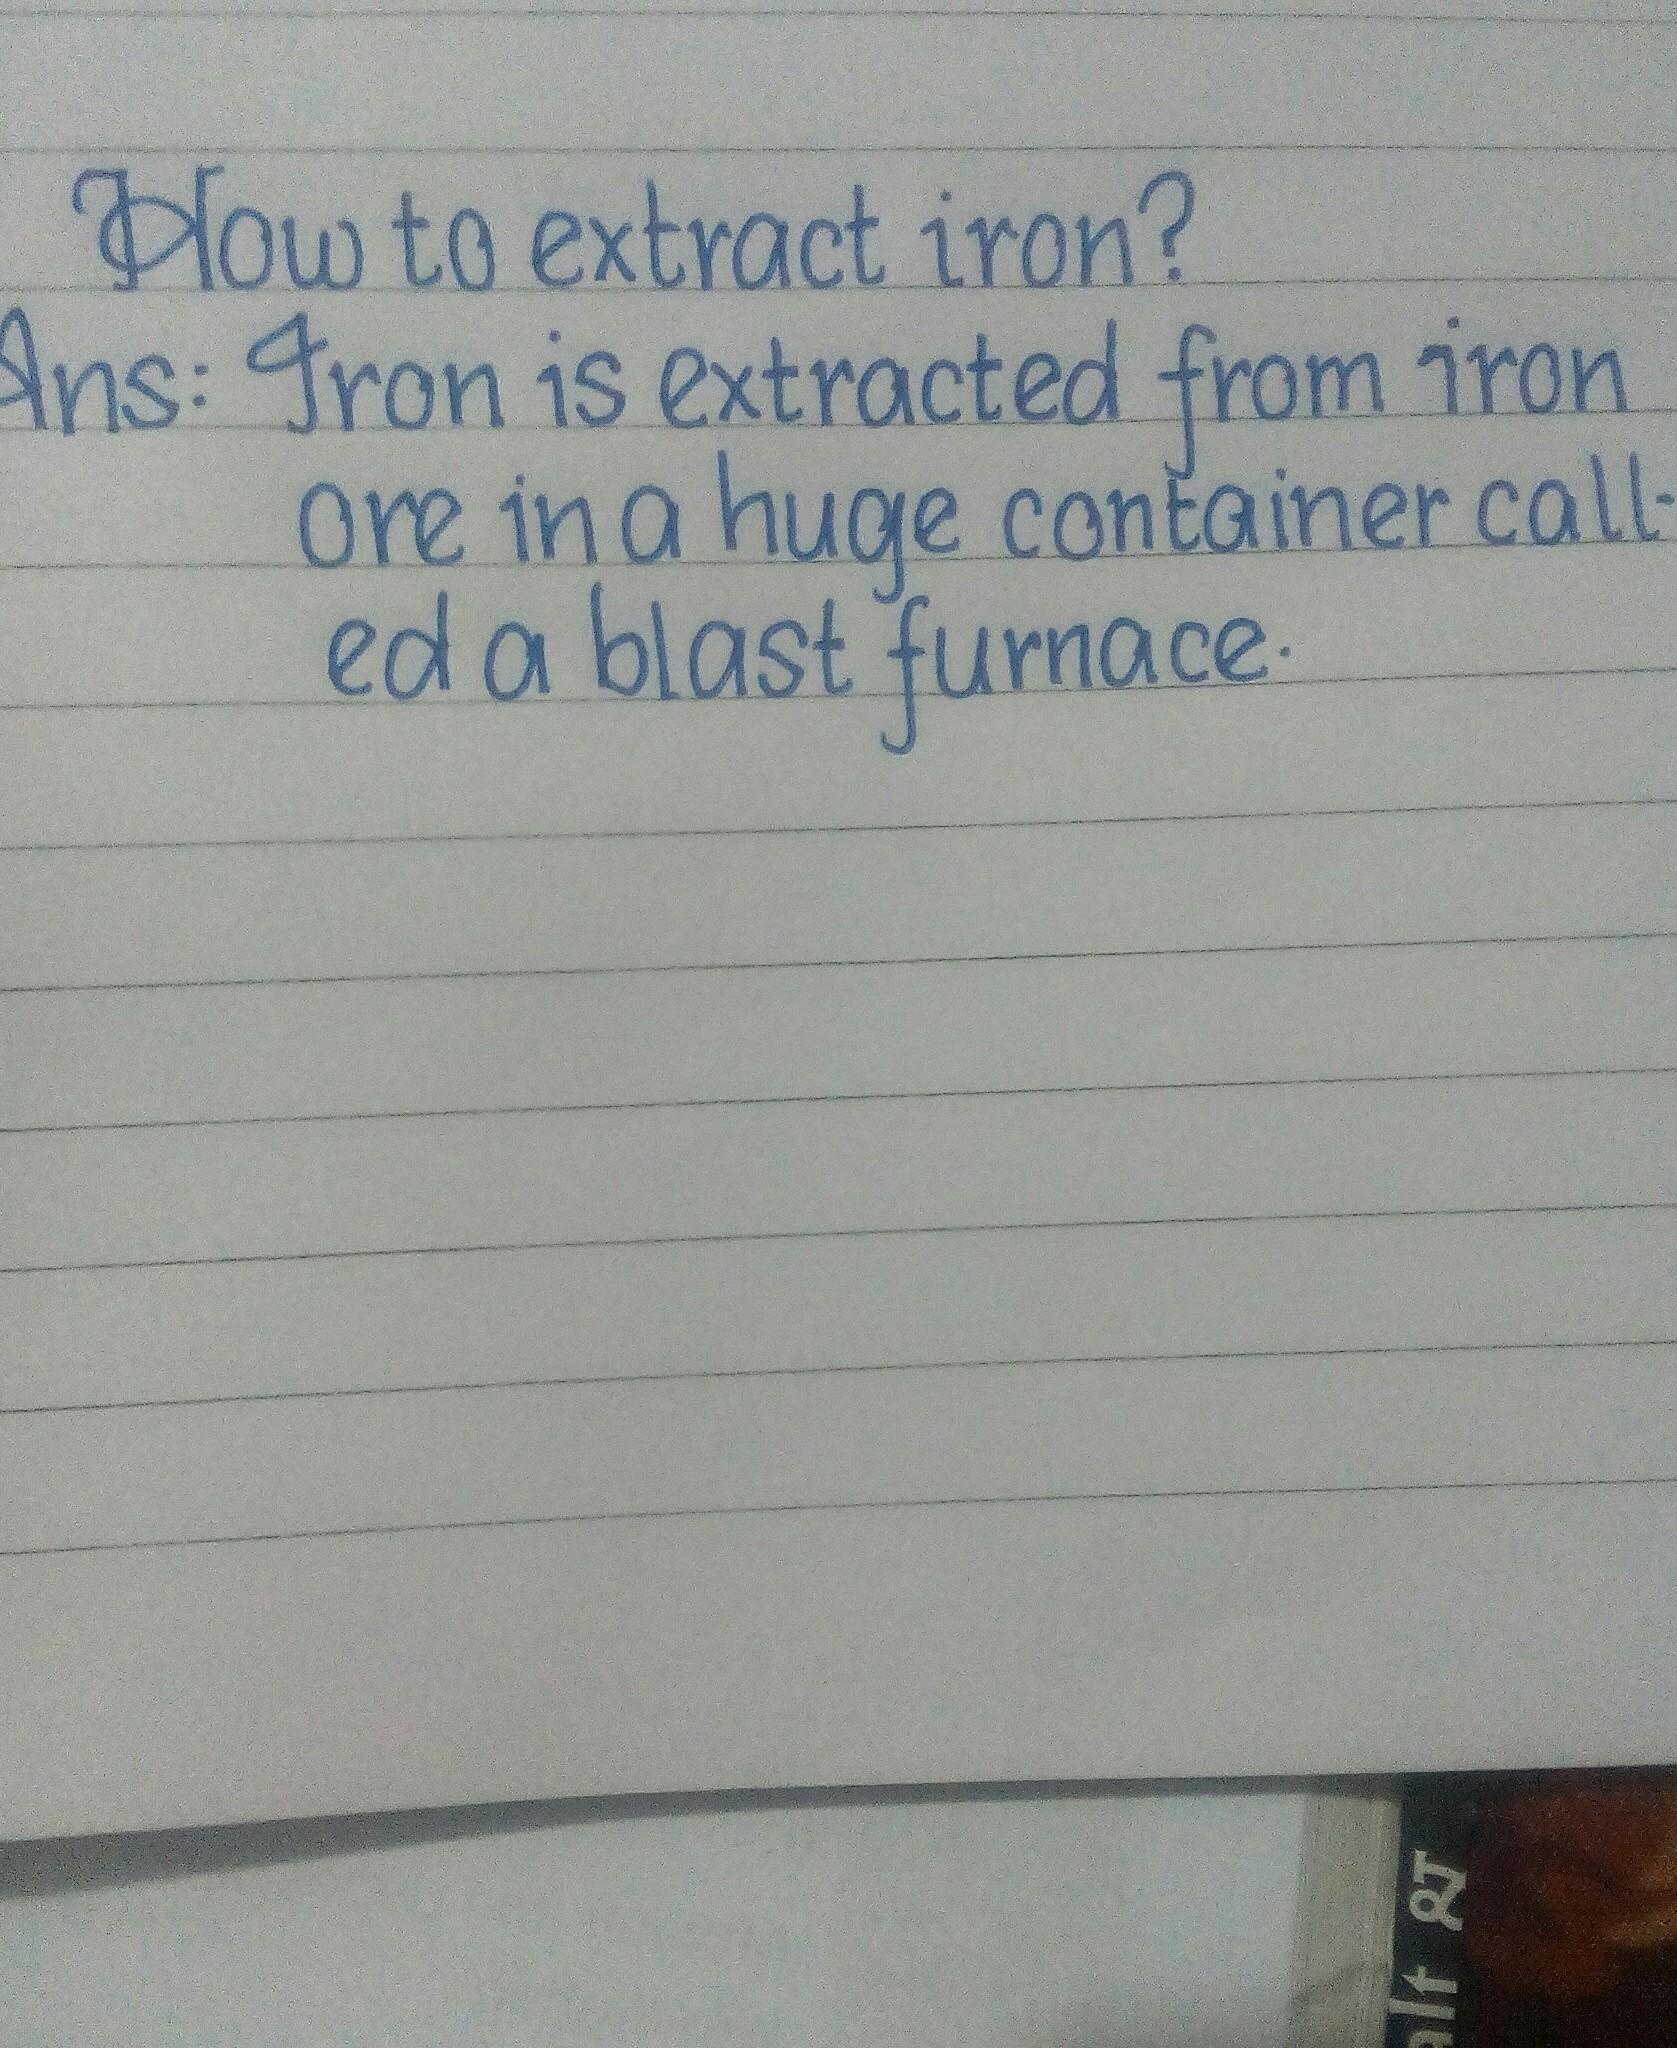 How to extract iron?
Ans: Iron is extracted from iron
ore in a huge container call-
ed a blast furnace.